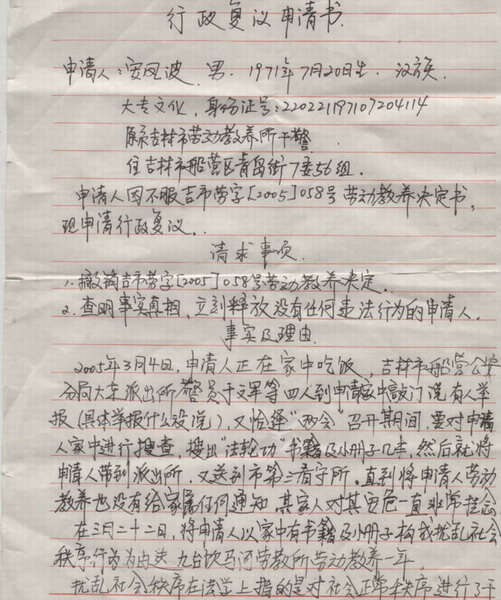 行政复议申请书
申请人：安凤波 男. 1971年7月20日生. 汉族
大专文化，身份证号：220221197107204114
原系吉林市劳动教养所干警
住吉林市船营区青岛街7委56组.
申请人因不服吉市劳字[2005]058号劳动教养决定书，
现申请行政复议.
请求事项.
1. 撤销吉市劳字[2005]058号劳动教养决定.
2. 查明事实真相，立刻释放没有任何违法行为的申请人.
事实及理由.
2005年3月4日，申请人正在家中吃饭，吉林市船营公安
分局大东派出所警员于文军等四人到申请家中敲门说有人举
报(具体举报什么没说)，又恰逢"两会"召开期间，要对申请
人家中进行搜查，搜出"法轮功"书籍及小册子几本，然后就将
申请人带到派出所，又送到市第三看守所.直到将申请人劳动
教养也没有给家属任何通知，其家人对其安危一直非常挂念
在三月二十二日，将申请人以家中有书籍及小册子构成扰乱社会
秩序行为为由送九台饮马河劳教所劳动教养一年.
扰乱社会秩序在法学上指的是对社会正常秩序进行了干